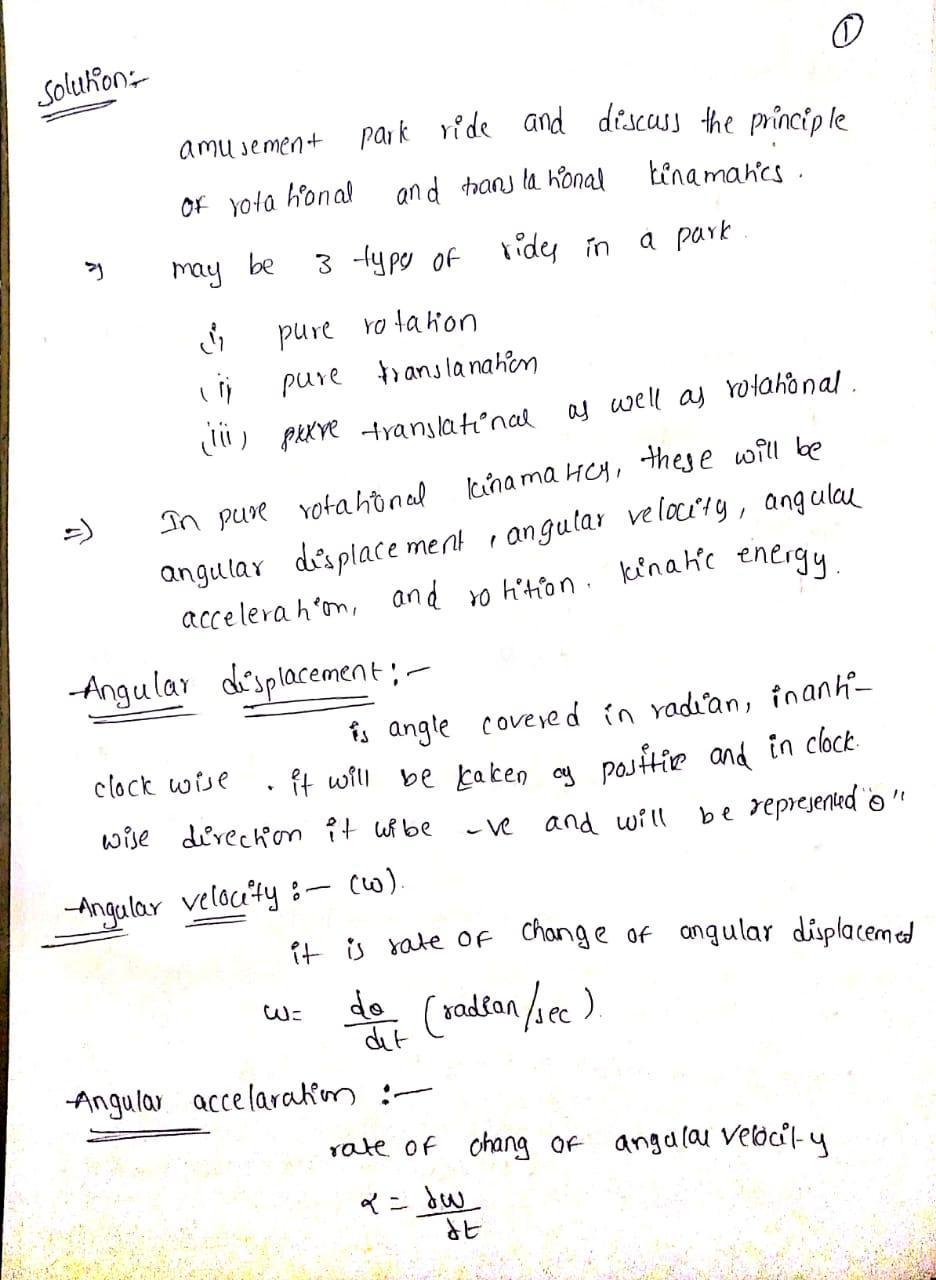 ①
Solution:-
amusement park ride and discuss the principle
of rotational and translational kinamatics.
=> may be 3 type of rides in a park.
(i) pure rotation
(ii) pure translanation
(iii) translational as well as rotational.
=> In pure rotational kinamatics, these will be
angular displacement, angular velocity, angular
acceleration, and rotition. kinatic energy.
Angular displacement:-
is angle covered in radian, in anti-
clock wise. it will be taken as positive and in clock.
wise direction it wibe -ve and will be represented "θ"
Angular velocity:- (ω).
it is rate of change of angular displacemed
ω= dθ/dt (radian/sec).
Angular accelaration:-
rate of chang of angular velocity
α = dω/dt